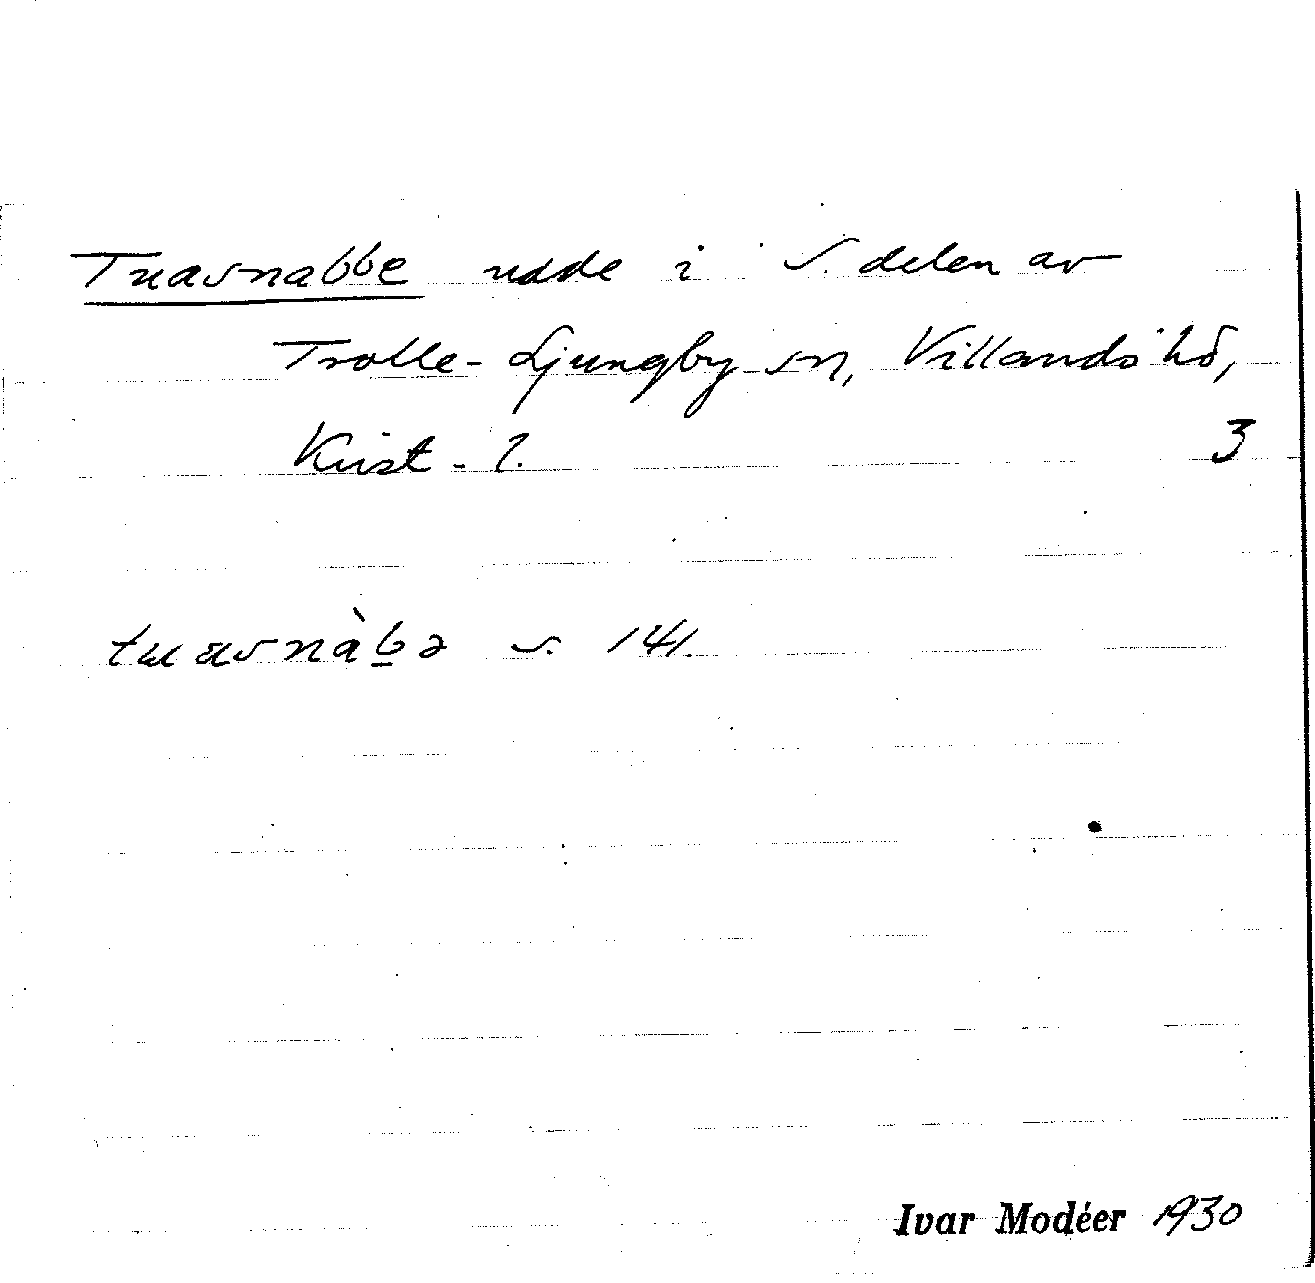 Tuasnabbe udde i S. delen av
Trolle-Ljungby sn, Villands hd,
Krist. l. 3
tuasnàbə s. 141.
Ivar Modéer 1930